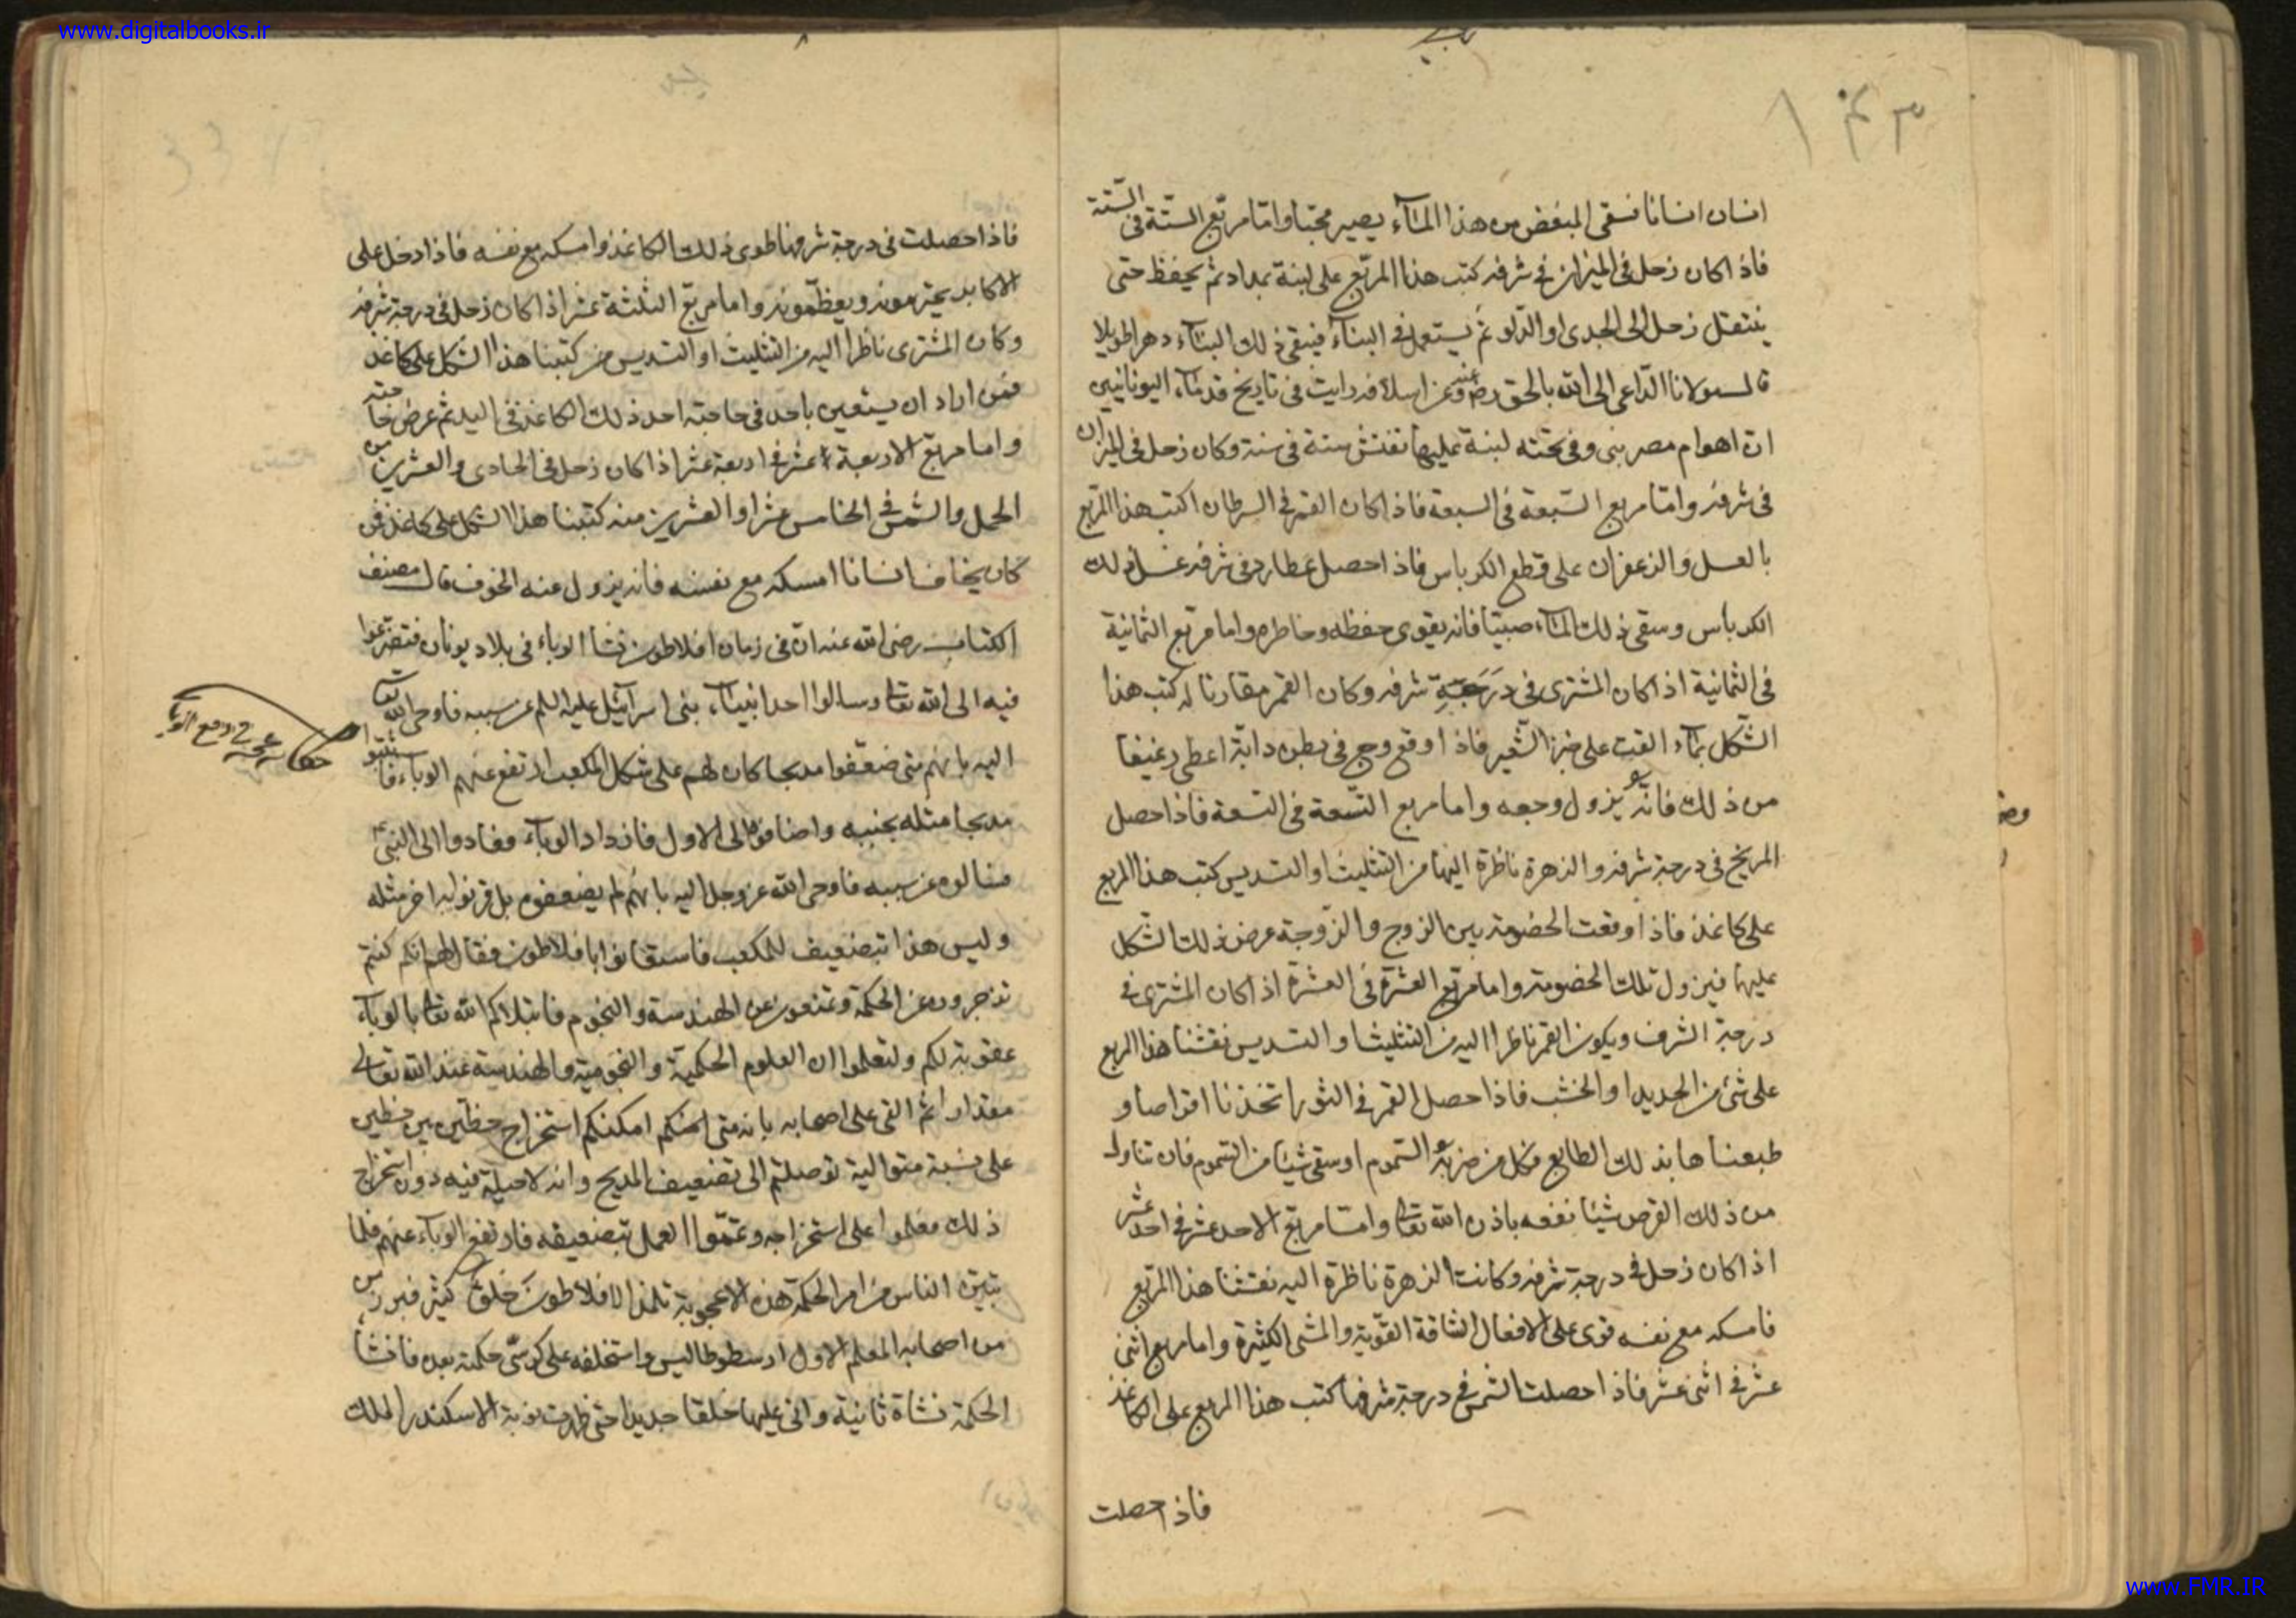 www.digitalbooks.ir
انسان انسانا فسقى المبغض من هذا المآء يصير محبّا وامّا مربّع الستّة فى الستّة
فاذا كان زحل فى الميزان فى شرفه كتب هذا المربّع على لبنة بمداد ثم يحفظ حتى
ينتقل زحل الى الجدى او الدلو ثم يستعمل فى البنآء فيبقى ذلك البنآء دهرا طويلا
قال مولانا الدّاعى الى الله بالحق رضى عنه وعن اسلافه رايت فى تاريخ قدمآء اليونانيين
انّ اهرام مصر بنى وفى تحته لبنة عليها نقش ستة فى ستة وكان زحل فى الميزان
فى شرفه وامّا مربع السّبعة فى السبعة فاذا كان القمر فى السرطان اكتب هذا المربّع
بالعسل والزعفران على قطع الكرباس فاذا حصل عطارد فى شرفه غسل ذلك
الكرباس وسقى ذلك المآء صبيّا فانه يقوى حفظه وخاطره واما مربّع الثمانية
فى الثمانية اذا كان المشترى فى درجة شرفه وكان القمر مقارنا له كتب هذا
الشّكل بمآء القت على خبز الشّعير فاذا وقع وجع فى بطن دابّة اعطى رغيفا
من ذلك فانّه يزول وجعه واما مربع التّسعة فى التسعة فاذا حصل
المريخ فى درجة شرفه والزهرة ناظرة اليها من التثليث او التسديس كتب هذا المربع
على كاغذ فاذا وقعت الخصومة بين الزوج والزّوجة عرض ذلك الشكل
عليها فيزول تلك الخصومة واما مربّع العشرة فى العشرة اذا كان المشترى فى
درجة الشرف ويكون القمر ناظرا اليه من التثليث او التسديس نقشنا هذا المربع
على شئ من الحديد او الخشب فاذا حصل القمر فى الثور اتخذنا اقراصا و
طبعناها بذلك الطابع فكل من ضربه السّموم او سقى شيئا من السّموم فان تناول
من ذلك القرص شيئا نفعه باذن الله تعالى وامّا مربّع الاحد عشر فى احد عشر
اذا كان زحل فى درجة شرفه وكانت الزهرة ناظرة اليه نقشنا هذا المربّع
فامسكه مع نفسه قوى على الافعال الشاقة القويّة والمشى الكثيرة واما مربع اثنى
عشر فى اثنى عشر فاذا حصلت الشمس فى درجة شرفها كتب هذا المربع على الكاغذ
فاذا حصلت
فاذا حصلت فى درجة شرفها طوى ذلك الكاغذ وامسكه مع نفسه فاذا دخل على
الاكابر يحترمونه ويعظّمونه واما مربّع الثلثة عشر اذا كان زحل فى درجة شرفه
وكان المشترى ناظرا اليه من التثليث او التسديس كتبنا هذا الشكل على كاغذ
فمن اراد ان يستعين باحد فى حاجته اخذ ذلك الكاغذ فى اليد ثم عرض حاجته
واما مربّع الاربعة عشر فى اربعة عشر اذا كان زحل فى الحادى والعشرين من
الحمل والشمس فى الخامس عشر او العشرين منه كتبنا هذا الشكل على كاغذ فمن
كان يخاف انسانا امسكه مع نفسه فانه يزول عنه الخوف قال مصنف
الكتاب رضى الله عنه انّ فى زمان افلاطون نشأ الوباء فى بلاد يونان فتضرّعوا
فيه الى الله تعالى وسالوا احد انبيآء بنى اسرآئيل عليه السلم عن سببه فاوحى الله تعالى
اليه بانهم متى ضعّفوا مذبحا كان لهم على شكل المكعب ارتفع عنهم الوباء فابتنوا
مذبحا مثله بجنبه واضافوها الى الاول فازداد الوبآء فعادوا الى النبىّ
فسالوه عن سببه فاوحى الله عز وجل اليه بانّهم لم يضعفوه بل قرنوا به اخر مثله
وليس هذا تبضعيف للمكعب فاستعانوا بافلاطون فقال لهم انكم كنتم
تزجرون عن الحكمة وتمنعون عن الهندسة والنجوم فابتلاكم الله تعالى بالوبآء
عقوبة لكم ولتعلموا ان العلوم الحكميّة والنجومية والهندسية عند الله تعالى
مقدارا ثم القى على اصحابه بانه متى امكنكم استخراج خطّين بين خطين
على نسبة متوالية توصلتم الى تضعيف المذبح وانه لا حيلة فيه دون استخراج
ذلك فعلموا على استخراجه وتمّموا العمل بتضعيفه فارتفع الوبآء عنهم فلما
تبيّن الناس من امر الحكمة هذه الاعجوبة تلمذ لافلاطون خلق كثير فبرز
من اصحابه المعلم الاول ارسطوطاليس واستخلفه على كرسّى حكمته بعده فانشأ
الحكمة نشاة ثانية وانى عليها خلقا جديدا حتى ظهرت نوبة الاسكندر الملك
حكاية عجيبة فى دفع الوباء
www.FMR.IR